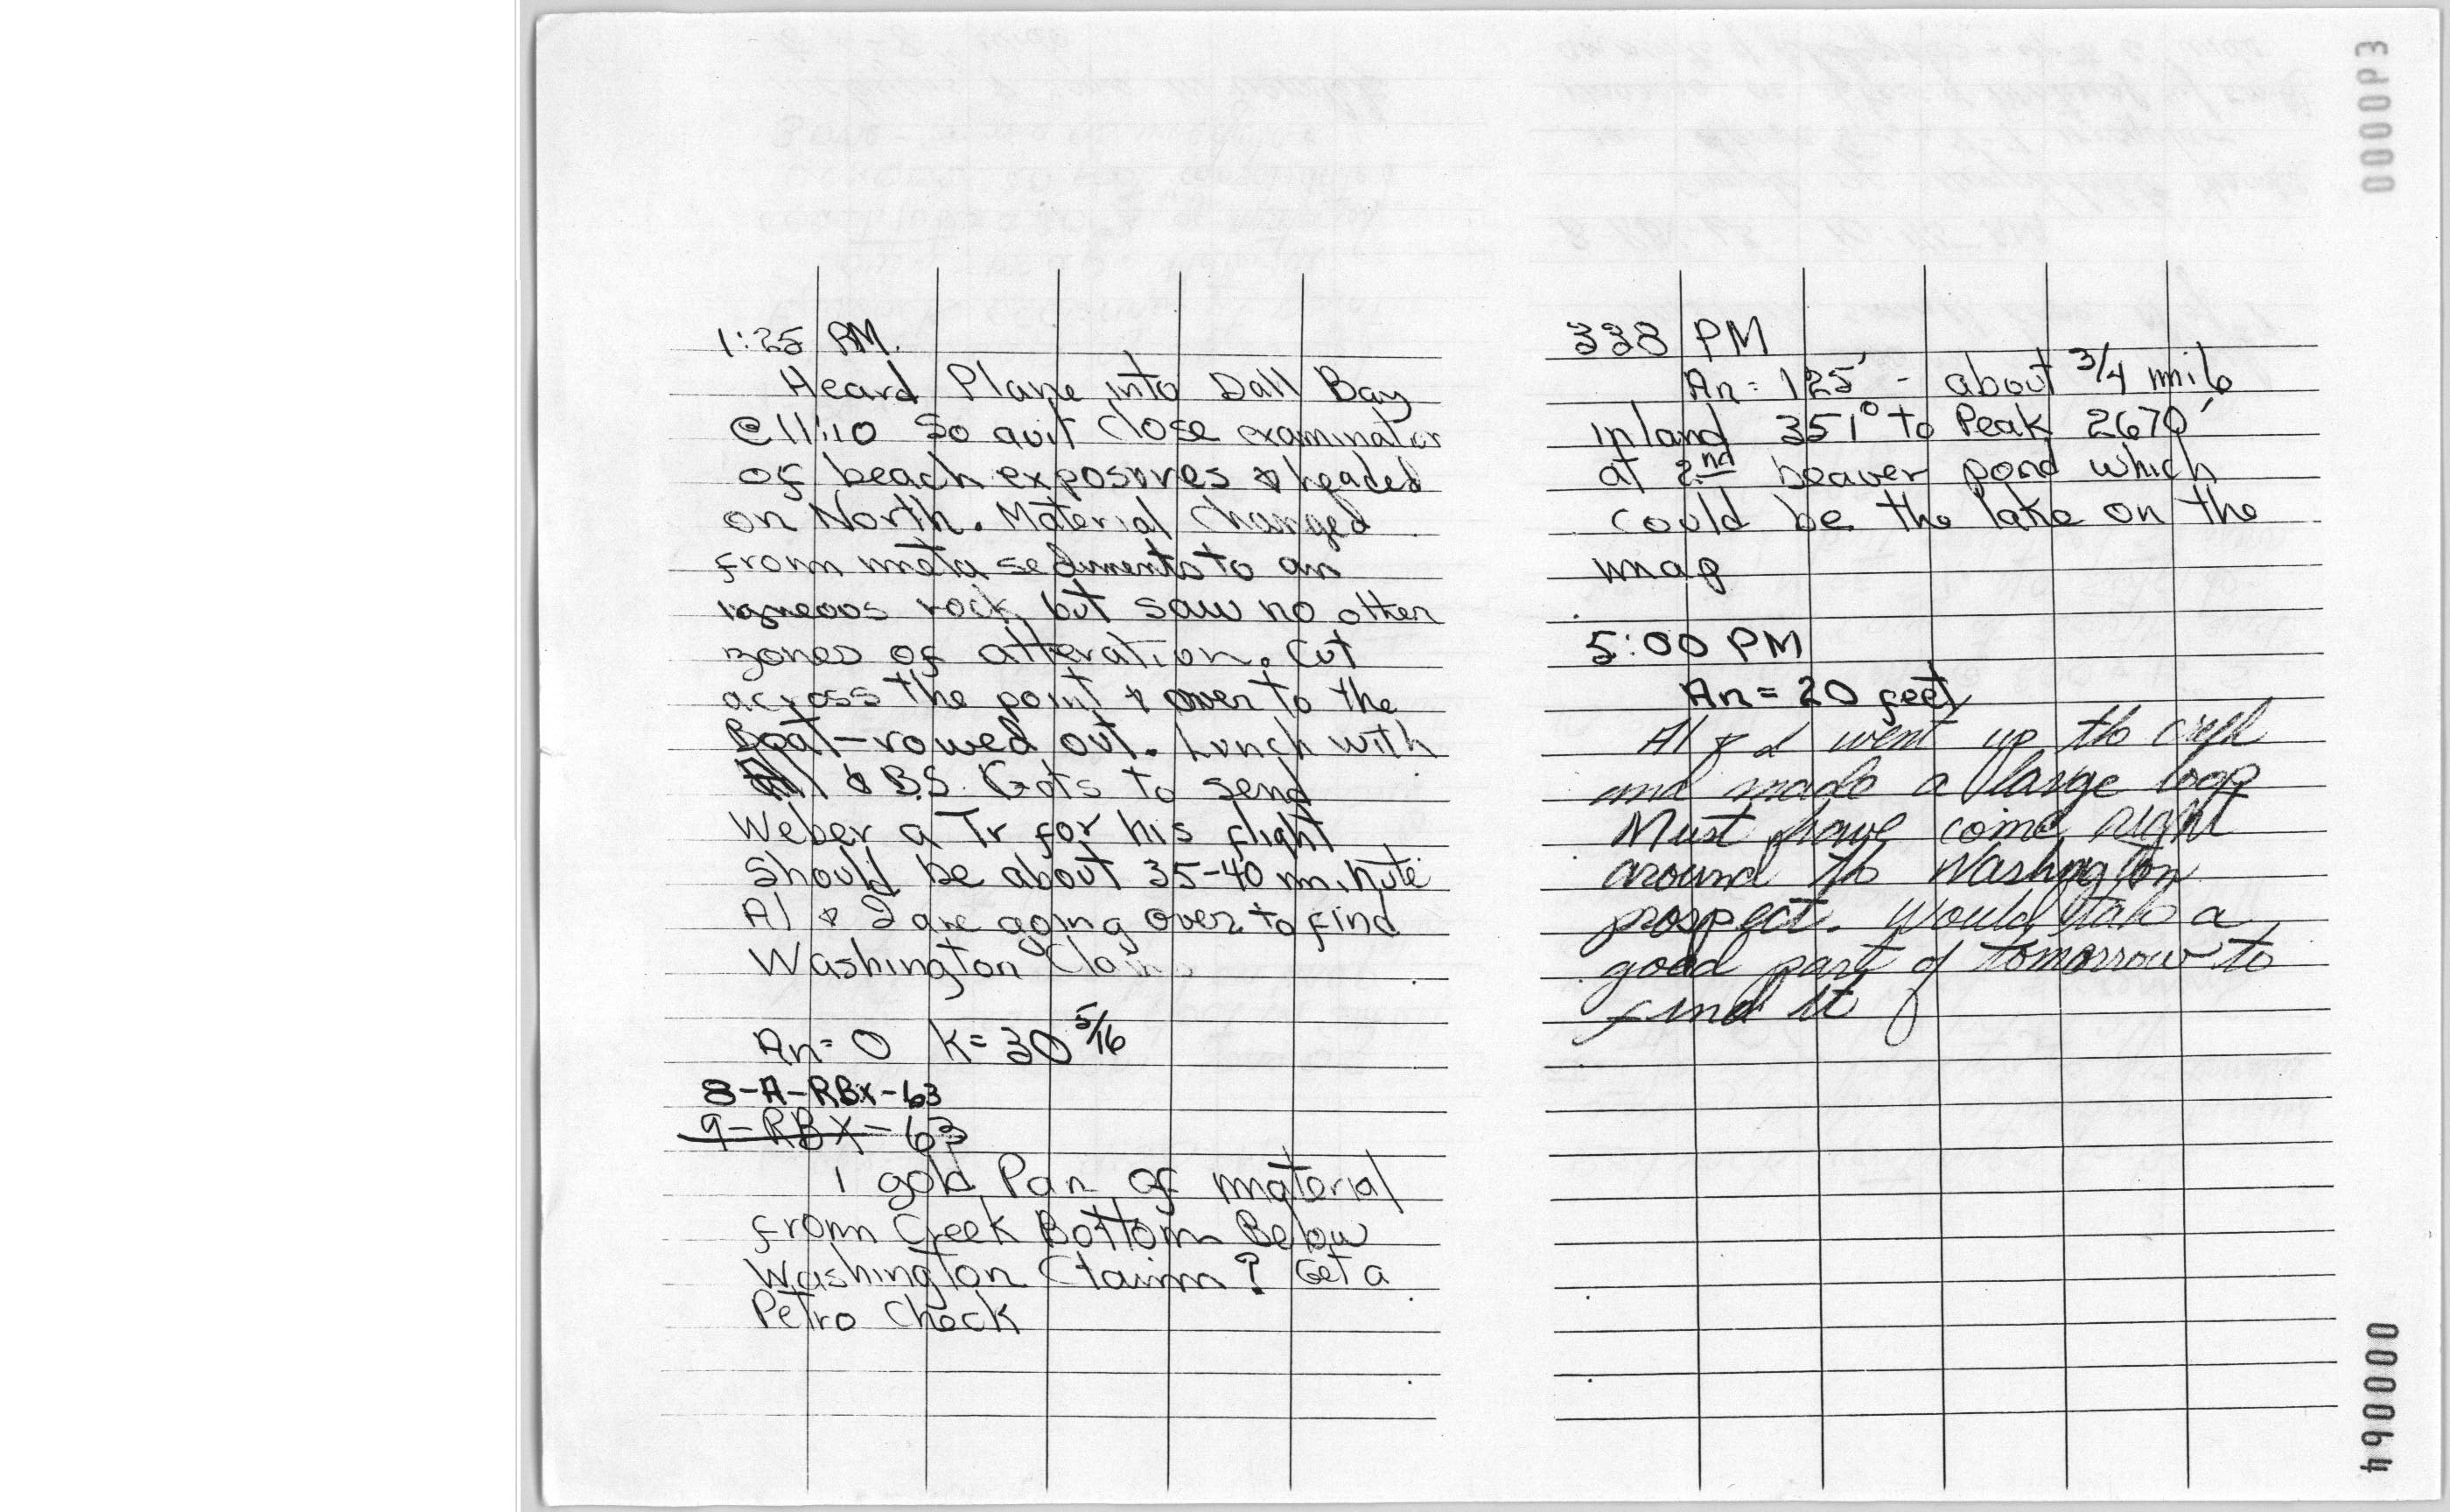 1:25 PM.
Heard Plane into Dall Bay
@ 11:10 So quit close examination
of beach exposures & headed
on North. Material changed
from meta sediments to an
igneous rock but saw no other
zones of alteration. Cut
across the point & over to the
Boat - rowed out. Lunch with
Al & B.S. Gots to send
Weber a Tr for his flight
Should be about 35-40 minute
Al & I are going over to find
Washington Claims
An = 0 K = 30 5/16
8-A-RBX-63
9-RBX-63
1 gold Pan of material
from Creek Bottom Below
Washington Claim? Get a
Petro Check
338 PM
An = 125' - about 3/4 mile
inland 351° to Peak 2670'
at 2nd beaver pond which
could be the lake on the
map
5:00 PM
An = 20 feet
Al & I went up the creek
and made a large loop
Must have come right
around the Washington
prospect. Would take a
good part of tomorrow to
find it
000064